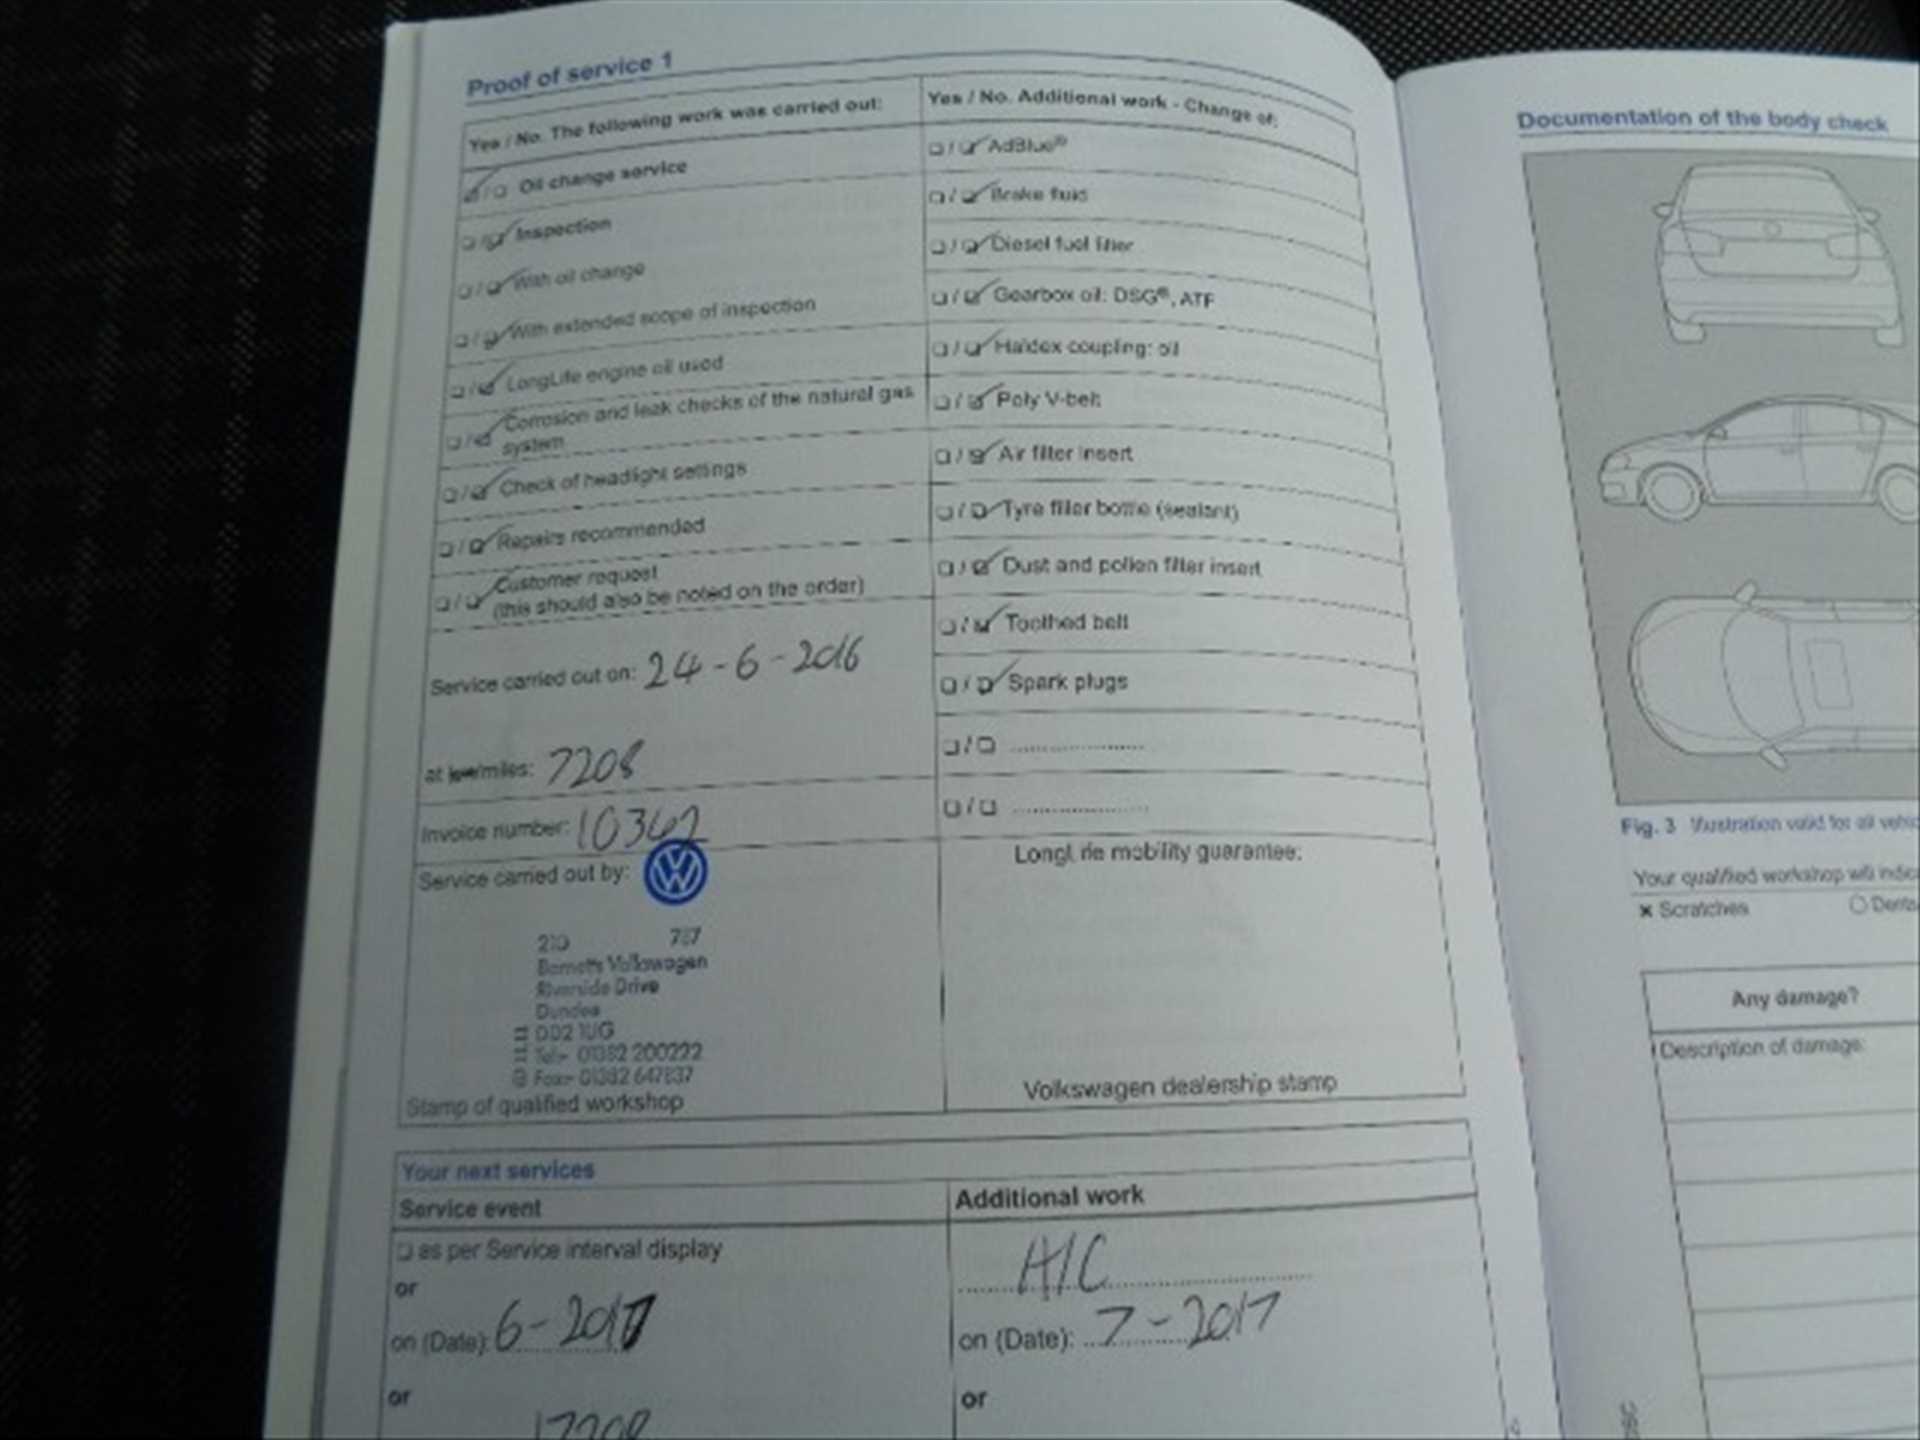 Proof of service 1
Yes / No. The following work was carried out:
Oil change service
Inspection
With oil change
With extended scope of inspection
LongLife engine oil used
Corrosion and leak checks of the natural gas
system
Check of headlight settings
Repairs recommended
Customer request
(this should also be noted on the order)
Service carried out on: 24-6-2016
at km/miles: 7208
Invoice number: 10362
Service carried out by:
210 767
Barnetts Volkswagen
Riverside Drive
Dundee
DD2 1UG
Tel:- 01382 200222
Fax:- 01382 647837
Stamp of qualified workshop
Yes / No. Additional work - Change of:
AdBlue®
Brake fluid
Diesel fuel filter
Gearbox oil: DSG®, ATF
Haldex coupling: oil
Poly V-belt
Air filter insert
Tyre filler bottle (sealant)
Dust and pollen filter insert
Toothed belt
Spark plugs
LongLife mobility guarantee:
Volkswagen dealership stamp
Your next services
Service event
as per Service interval display
or
on (Date): 6-2017
or
17208
Additional work
A/C
on (Date): 7-2017
or
Documentation of the body check
Fig. 3 Illustration valid for all
Your qualified workshop will
x Scratches
Any damage?
Description of damage: